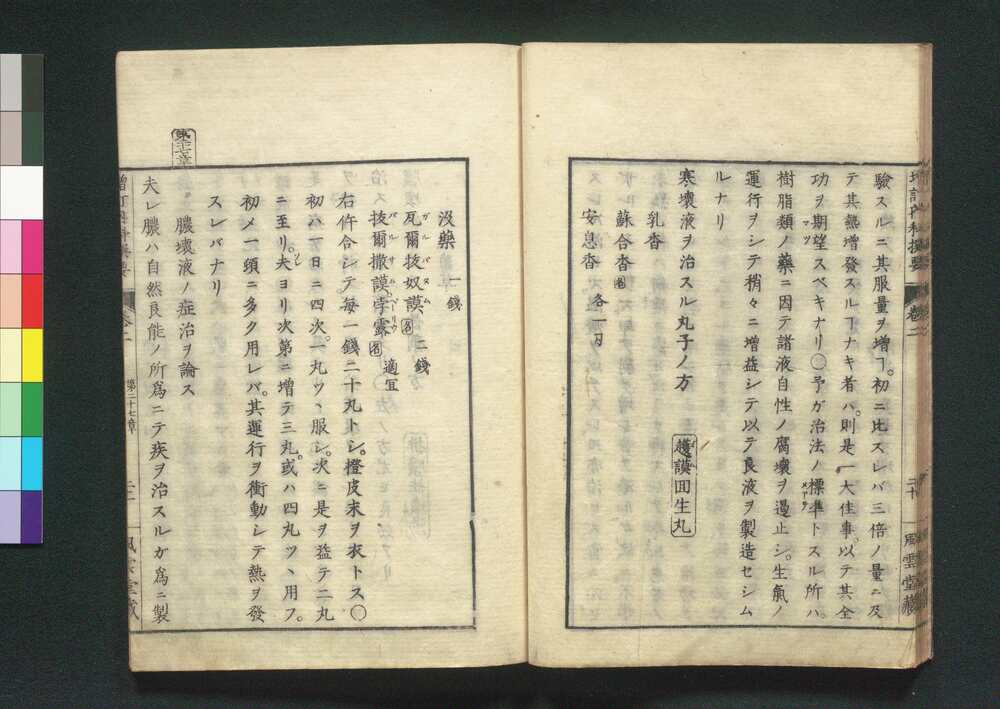 驗スルニ其服量ヲ増ヿ。初ニ比スレバ三倍ノ量ニ及
テ其熱増發スルヿナキ者ハ。則是一大佳事。以テ其全
功ヲ期望スベキナリ〇予ガ治法ノ標準トスル所ハ。
樹脂類ノ藥ニ因テ諸液自性ノ腐壞ヲ遏止シ。生氣ノ
運行ヲシテ稍々ニ増益シテ以テ良液ヲ製造セシム
ルナリ
寒壞液ヲ治スル丸子ノ方
回生丸
乳香
蘇合香
安息香 各一匁
増訂内科撰要 卷二 二十 風雲堂藏
没藥 一錢
瓦爾抜奴謨 二錢
ガルバヌム
抜爾撒謨孛露 適宜
バルサムペリウ
右件合シテ毎一錢二十丸トシ。橙皮末ヲ衣トス〇
初ハ一日ニ四次。一丸ツヽ服シ。次ニ是ヲ益テ二丸
ニ至リ。夫ヨリ次第ニ増テ三丸。或ハ四丸ツヽ用フ。
初メ一頭ニ多ク用レバ。其運行ヲ衝動シテ熱ヲ發
スレバナリ
膿壞液ノ症治ヲ論ス
夫レ膿ハ自然良能ノ所爲ニテ疾ヲ治スルガ爲ニ製
第二十七章